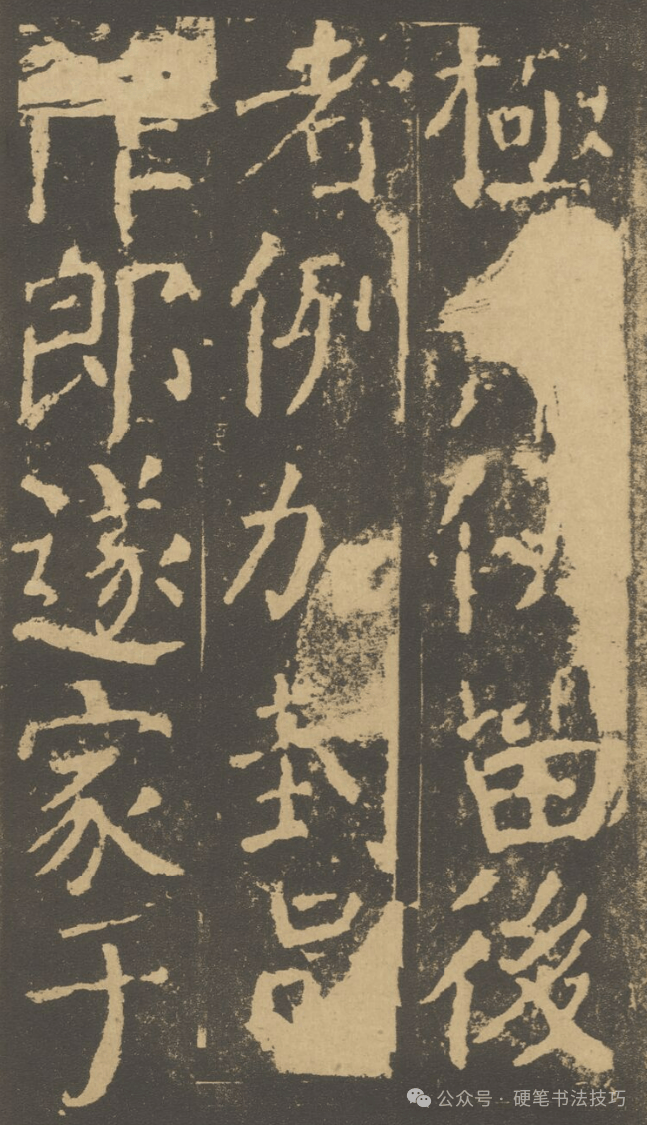 極留後
者例力封
作郎遂家于
公众号·硬笔书法技巧